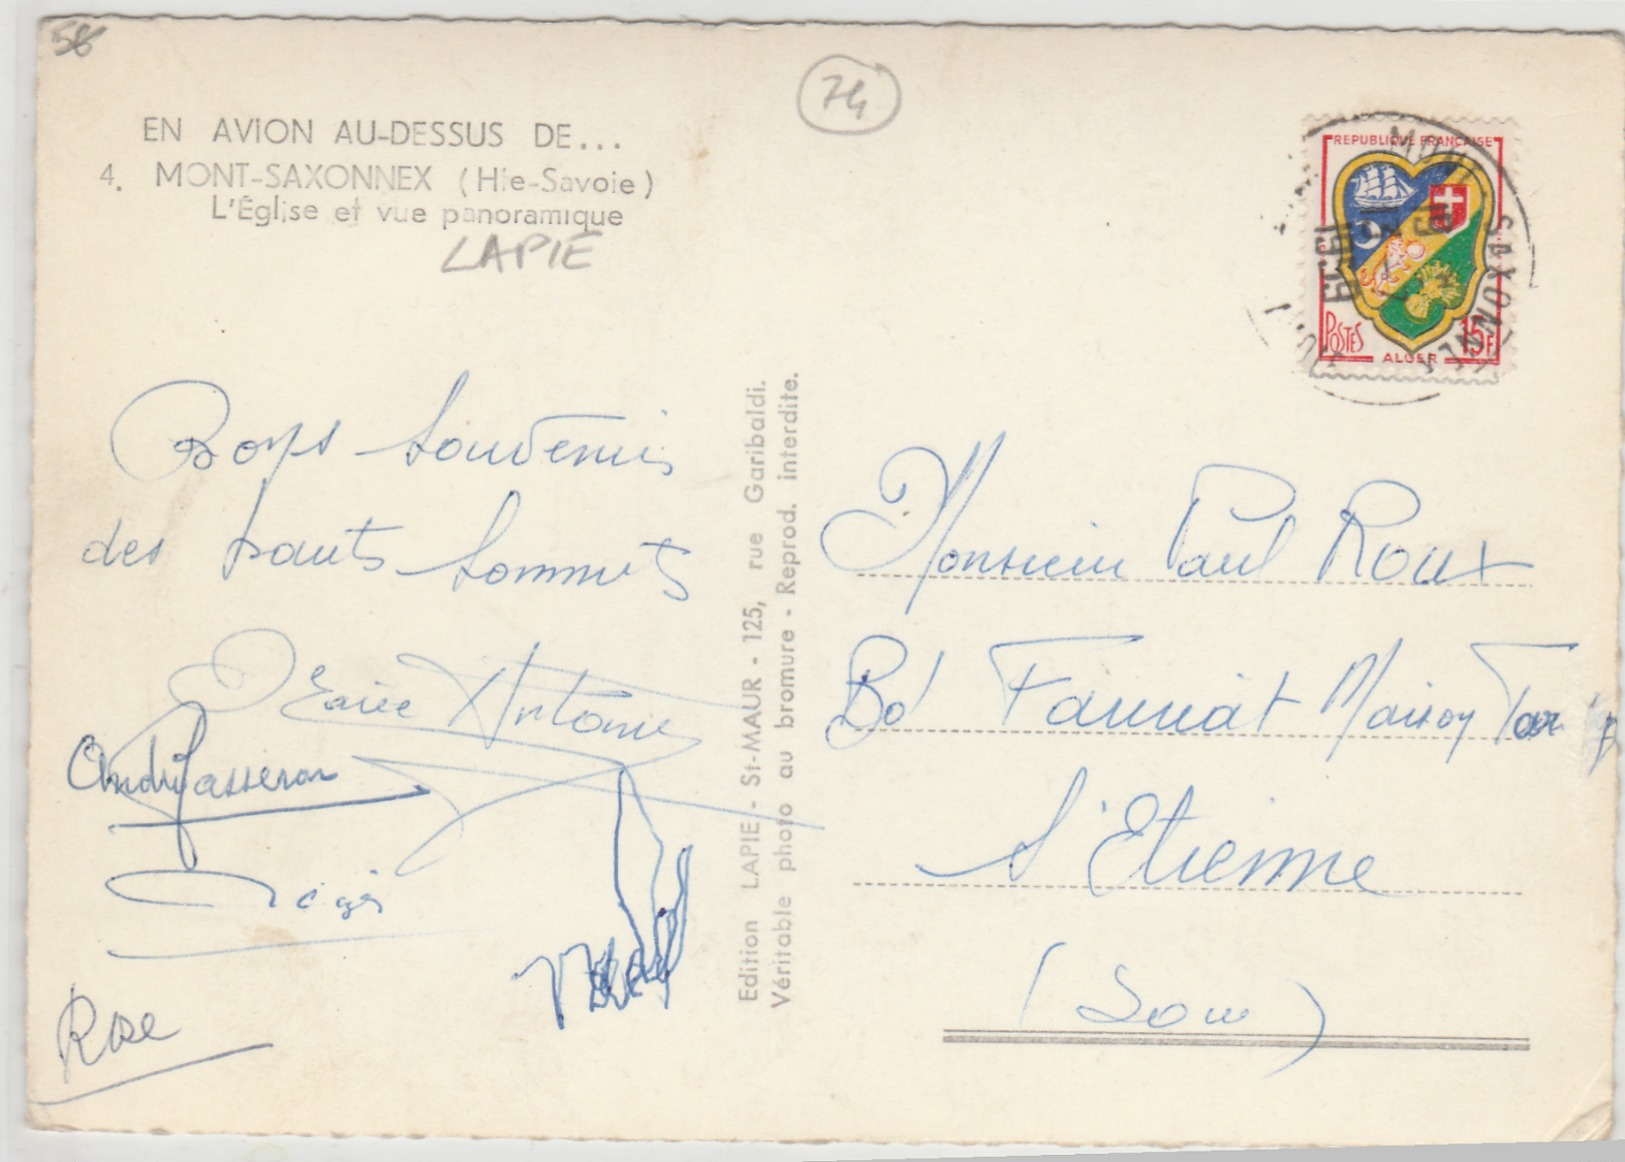 58
74
EN AVION AU-DESSUS DE...
4. MONT-SAXONNEX (Hte-Savoie)
L'Église et vue panoramique
LAPIE
REPUBLIQUE FRANÇAISE
POSTES
15F
ALGER
SAXONNEX
Bons Souvenirs
des hauts Sommets
Antoine
André Passeron
Rose
Edition LAPIE - St-MAUR - 125, rue Garibaldi.
Véritable photo au bromure - Reprod. interdite.
Monsieur Paul Roux
Bd Fauriat Maison
St Etienne
(Loire)